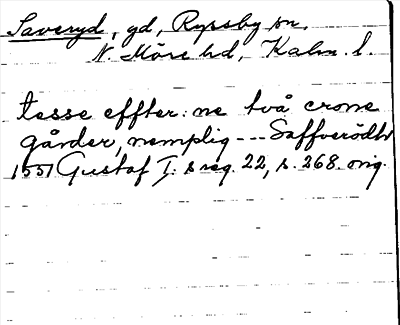 Saveryd, gd, Ryssby sn,
N. Möre hd, Kalm. l.
tesse effter: ne två crone
gårder, nemplig --- Saffverödh
1551 Gustaf I: s reg. 22, s. 268. orig.